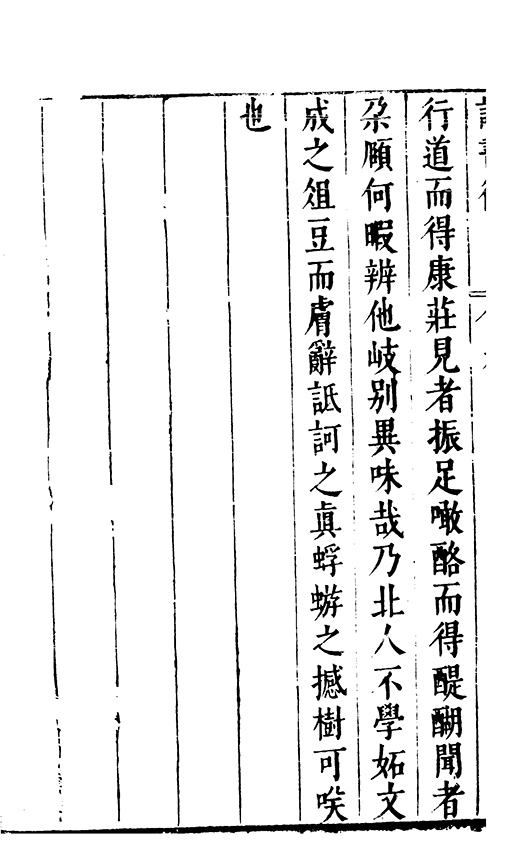 行道而得康莊見者振足噉酪而得醍醐聞者
朶頥何暇辨他岐别異味哉乃北人不學妬文
成之俎豆而膚辭詆訶之眞蜉蝣之撼樹可唉
也